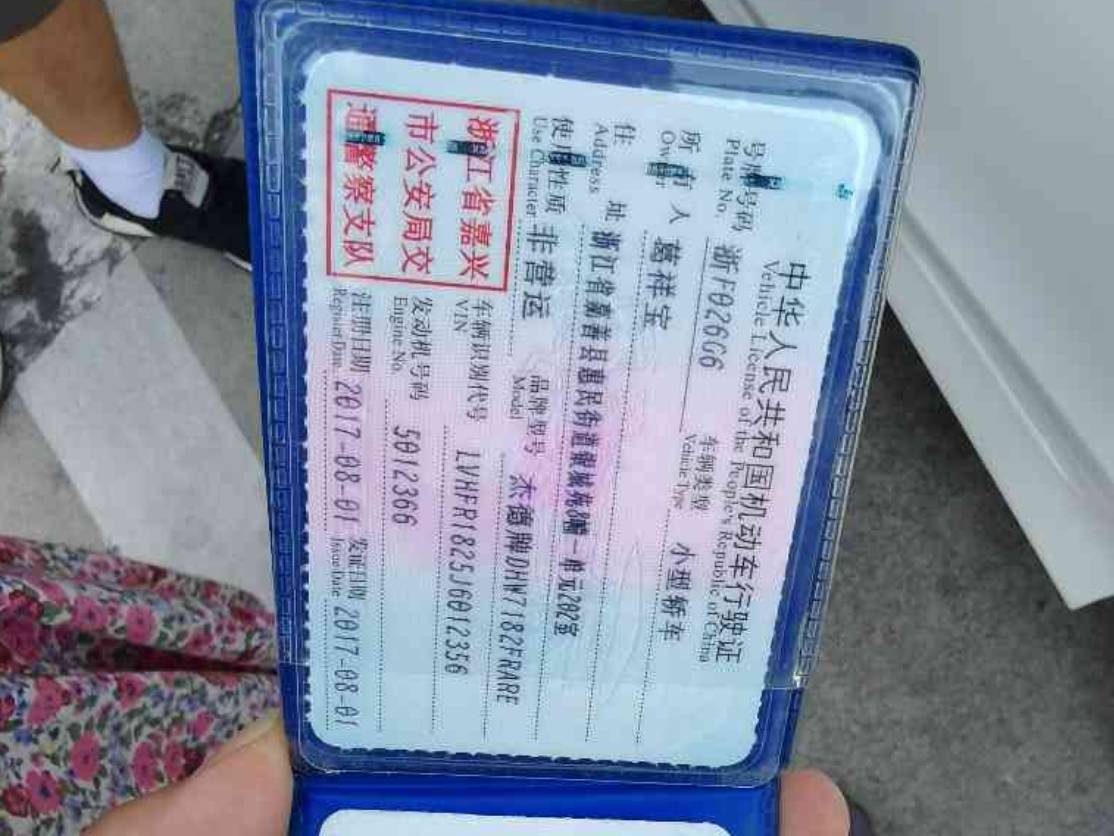 中华人民共和国机动车行驶证
Vehicle License of the People's Republic of China
号牌号码 浙F026G6 车辆类型 小型轿车
Plate No. Vehicle Type
所有人 葛祥宝
Owner
住址 浙江省嘉善县惠民街道 一单元202室
Address
使用性质 非营运 品牌型号 杰德牌DHW7182FRARE
Use Character Model
浙江省嘉兴
市公安局交
通警察支队
车辆识别代号 LVHFR1825J6012356
VIN
发动机号码 5012366
Engine No.
注册日期 2017-08-01 发证日期 2017-08-01
Register Date Issue Date